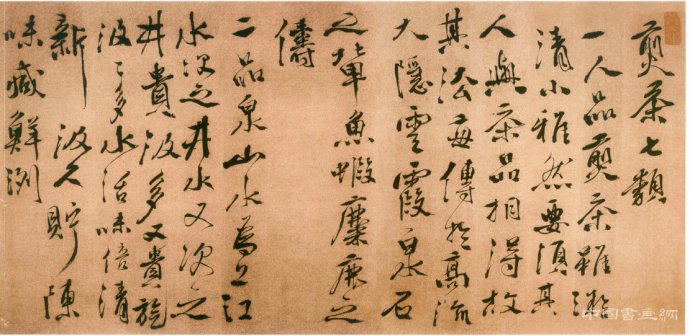 煎茶七類
一人品煎茶雖凝
清小雅然要須其
人與茶品相得故
其法每傳於高流
大隱雲霞泉石
之輩魚蝦麋鹿之
儔
二品泉山水為上江
水次之井水又次之
井貴汲多又貴旋
汲〻多水活味倍清
新汲久貯陳
味減鮮冽
中国書画網